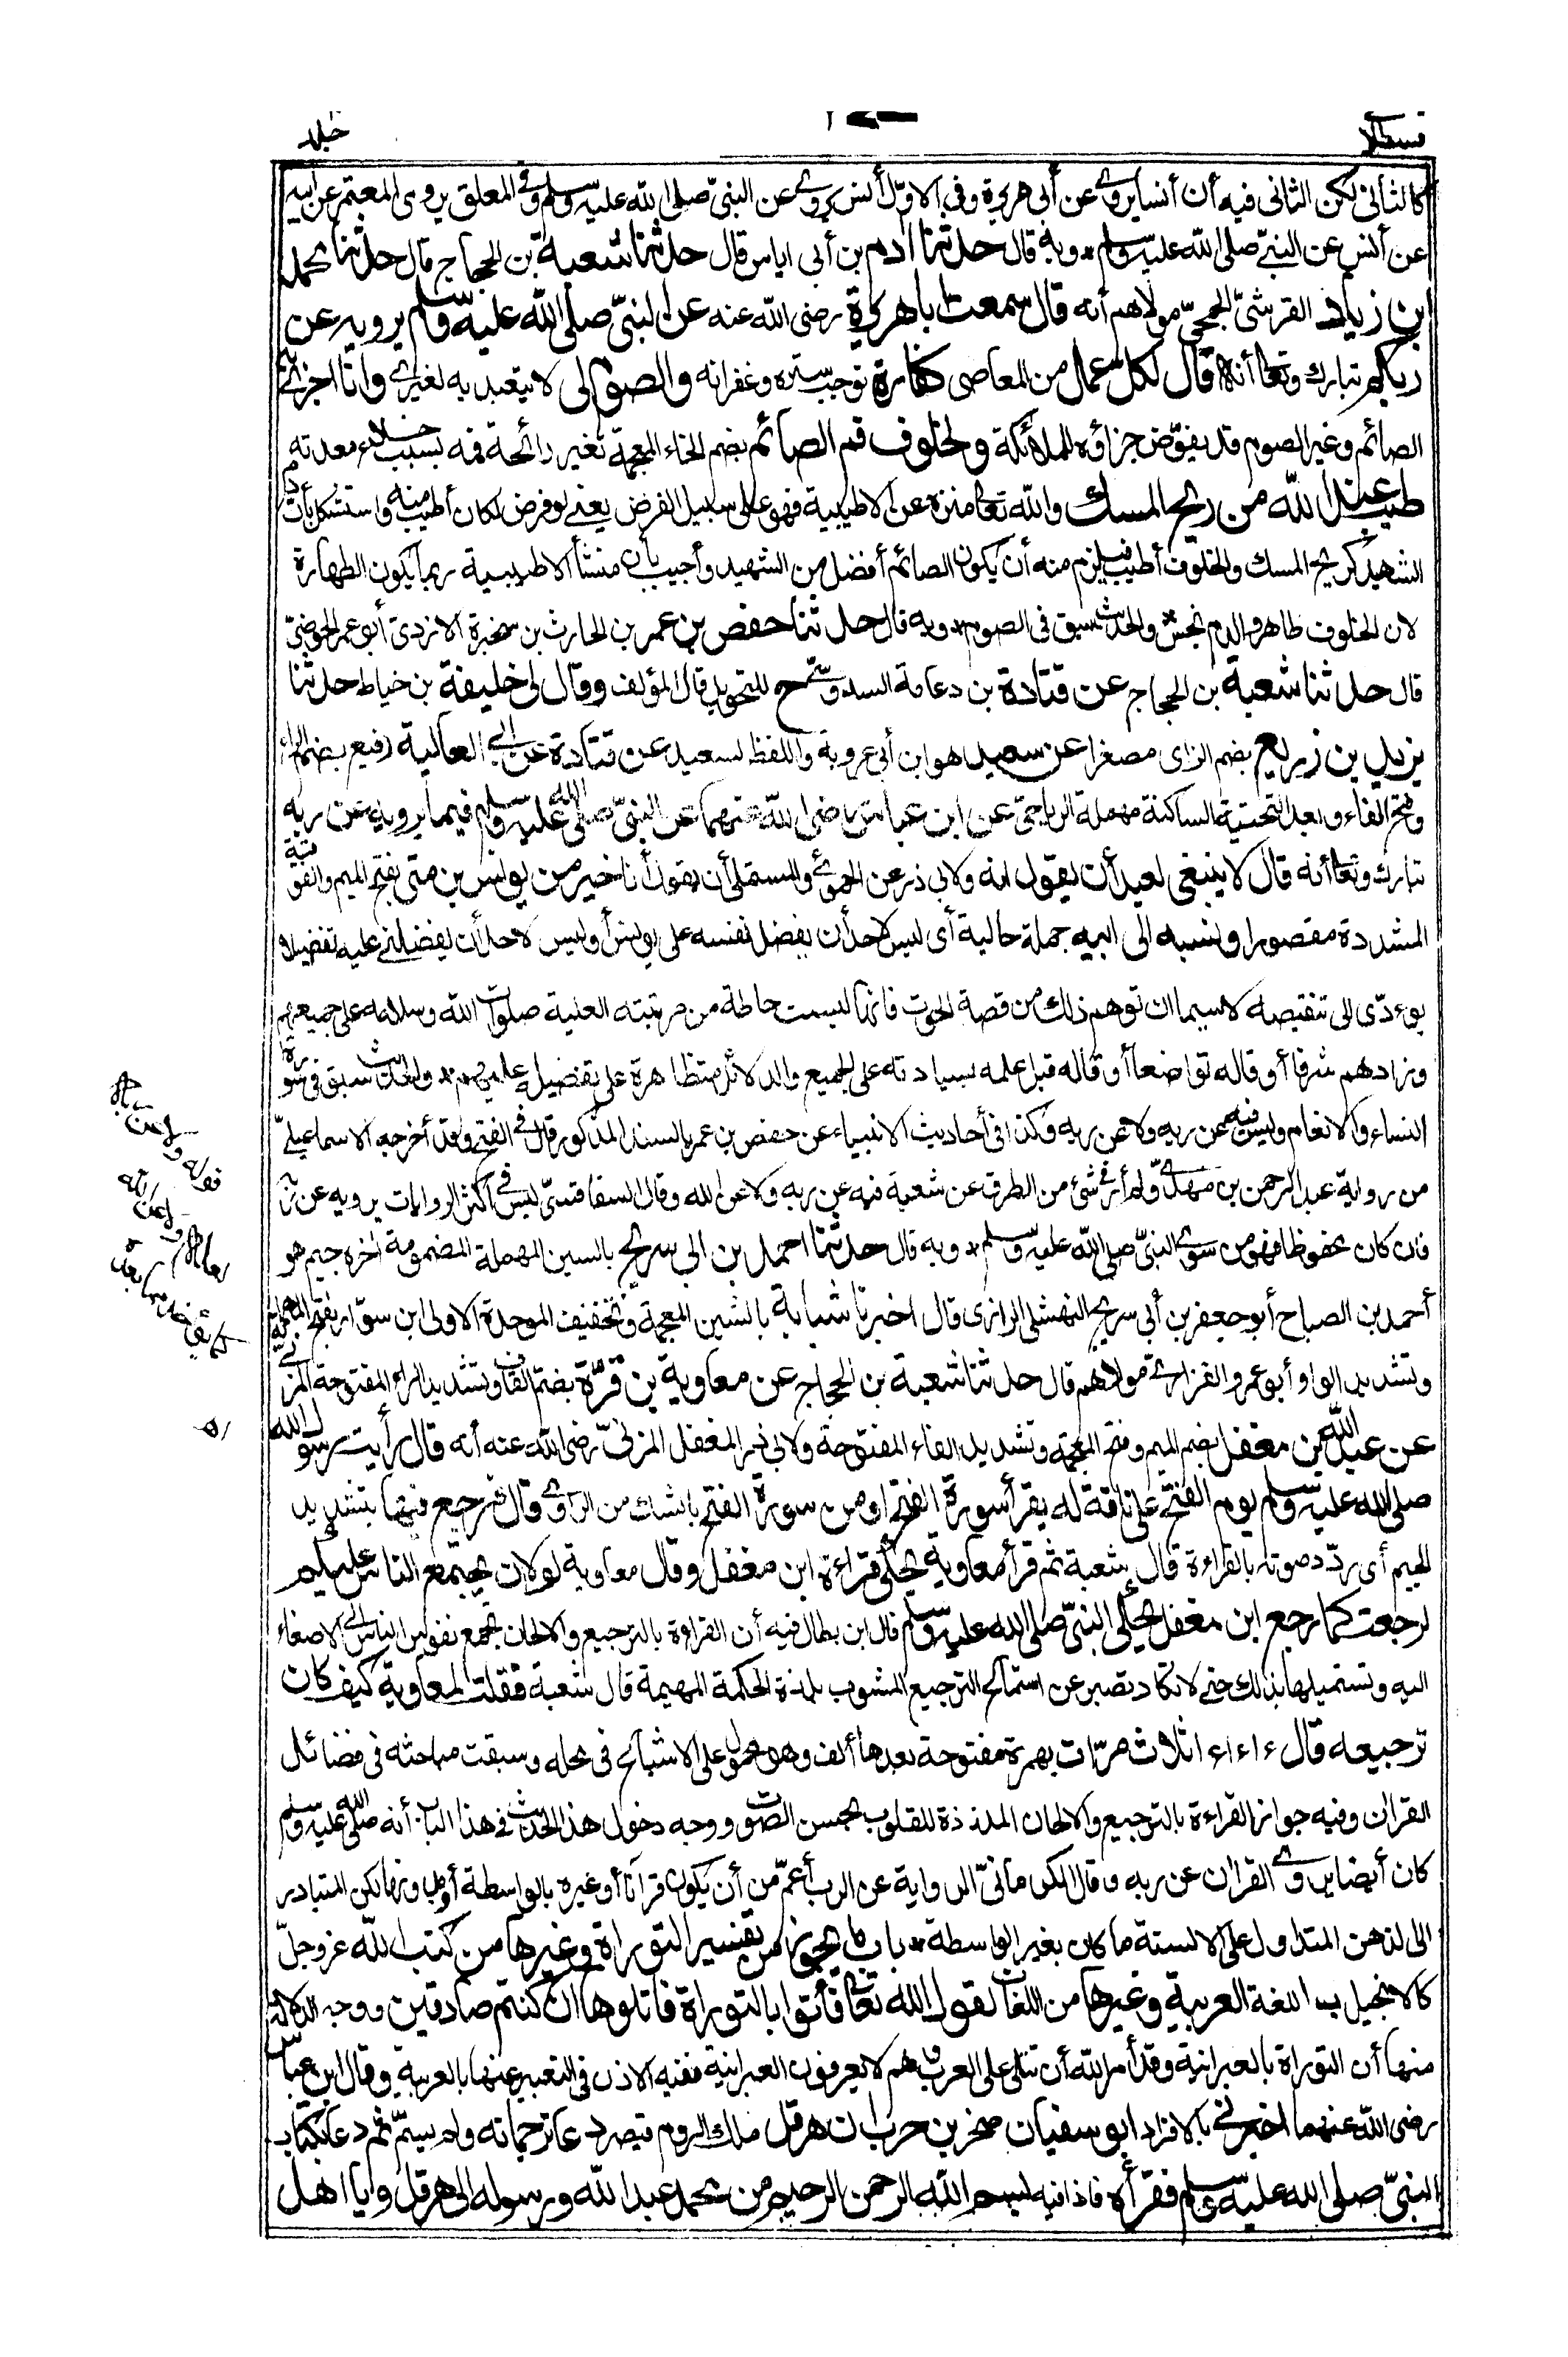 قسطلا
جلد
كالثانى لكن الثانى فيه أن أنسا يروى عن أبى هريرة وفى الاوّل أنس يروى عن النبىّ صلى الله عليه وسلم وفى المعلق يروى المعتمر عن ابيه
عن أنس عن النبى صلى الله عليه وسلم * وبه قال حدثنا ادم بن أبى اياس قال حدثنا شعبة بن الحجاج قال حدثنا محمد
ابن زياد القرشىّ الجمحىّ مولاهم أنه قال سمعت أبا هريرة رضى الله عنه عن النبىّ صلى الله عليه وسلم يرويه عن
ربكم تبارك وتعالى أنه قال لكل عمل من المعاصى كفارة توجب ستره وغفرانه والصوم لى لا يتعبد به لغيرى وانا اجزى به
الصائم وغير الصوم قد يفوّض جزاؤه للملائكة ولخلوف فم الصائم بضم الخاء المعجمة تغير رائحة فمه بسبب خلاء معدته
طيب عند الله من ريح المسك والله تعالى منزه عن الاطيبية فهو على سبيل الفرض يعنى لو فرض لكان أطيب منه واستشكل بأن دم
الشهيد كريح المسك والخلوف أطيب فيلزم منه أن يكون الصائم أفضل من الشهيد وأجيب بأن منشأ الاطيبية ربما يكون الطهارة
لان الخلوف طاهر والدم نجس * والحديث سبق فى الصوم * وبه قال حدثنا حفص بن عمر بن الحارث بن سخبرة الازدى أبو عمر الحوضىّ
قال حدثنا شعبة بن الحجاج عن قتادة بن دعامة السدوسى ح للتحويل قال المؤلف وقال لى خليفة بن خياط حدثنا
يزيد بن زريع بضم الزاى مصغرا عن سعيد هو ابن أبى عروبة واللفظ لسعيد عن قتادة عن ابى العالية رفيع بضم الراء
وفتح الفاء وبعد التحتية الساكنة مهملة الرياحىّ عن ابن عباس رضى الله عنهما عن النبىّ صلى الله عليه وسلم فيما يرويه عن ربه
تبارك وتعالى أنه قال لا ينبغى لعبد أن يقول انه ولابى ذر عن الحموى والمستملى أن يقول أنا خير من يونس بن متى بفتح الميم والفوقية
المشددة مقصورا ونسبه الى ابيه جملة حالية أى ليس لاحد أن يفضل نفسه على يونس أو ليس لاحد أن يفضلنى عليه تفضيلا
يؤدّى الى تنقيصه لا سيما ان توهم ذلك من قصة الحوت فانها ليست حاطة من مرتبته العلية صلوات الله وسلامه على جميعهم
وزادهم شرفا أو قاله تواضعا أو قاله قبل علمه بسيادته على الجميع والدلائل متظاهرة على تفضيله عليهم * والحديث سبق فى سورة
النساء والانعام وليس فيه عن ربه ولا عن ربه وكذا فى أحاديث الانبياء عن حفص بن عمر بالسند المذكور قال فى الفتح وقد أخرجه الاسماعيلىّ
من رواية عبد الرحمن بن مهدىّ ولم أر فى شئ من الطرق عن شعبة فيه عن ربه ولا عن الله وقال السفاقسىّ ليس فى أكثر الروايات يرويه عن ربه
فان كان محفوظا فهو من سوى النبىّ صلى الله عليه وسلم * وبه قال حدثنا احمد بن ابى سريج بالسين المهملة المضمومة آخره جيم هو
أحمد بن الصباح أبو جعفر بن أبى سريج النهشلى الرازى قال اخبرنا شبابة بالشين المعجمة وتخفيف الموحدة الاولى ابن سوّار بفتح المهملة
وتشديد الواو أبو عمرو الفزارى مولاهم قال حدثنا شعبة بن الحجاج عن معاوية بن قرّة بضم القاف وتشديد الراء المفتوحة المزنىّ
عن عبد الله بن مغفل بضم الميم وفتح المعجمة وتشديد الفاء المفتوحة ولابى ذر المغفل المزنىّ رضى الله عنه أنه قال رأيت رسول الله
صلى الله عليه وسلم يوم الفتح على ناقة له يقرأ سورة الفتح او من سورة الفتح بالشك من الراوى قال فرجع فيها بتشديد
الجيم أى ردّد صوته بالقراءة قال شعبة ثم قرأ معاوية يحكى قراءة ابن مغفل وقال معاوية لولا ان يجتمع الناس عليكم
لرجعت كما رجع ابن مغفل يحكى النبىّ صلى الله عليه وسلم قال ابن بطال فيه أن القراءة بالترجيع والالحان تجمع نفوس الناس الى الاصغاء
اليه وتستميلها بذلك حتى لا تكاد تصبر عن استماع الترجيع المشوب بلذة الحكمة المهيمة قال شعبة فقلت لمعاوية كيف كان
ترجيعه قال ءاءاءا ثلاث مرّات بهمزة مفتوحة بعدها ألف وهو محمول على الاشباع فى محله وسبقت مباحثه فى فضائل
القران وفيه جواز القراءة بالترجيع والالحان الملذذة للقلوب بحسن الصوت ووجه دخول هذا الحديث فى هذا الباب أنه صلى الله عليه وسلم
كان أيضا يروى القران عن ربه وقال الكرمانىّ الرواية عن الرب أعمّ من أن يكون قرآنا أو غيره بالواسطة أو بدونها لكن المتبادر
الى الذهن المتداول على الالسنة ما كان بغير الواسطة * باب ما يجوز من تفسير التوراة وغيرها من كتب الله عزوجلّ
كالانجيل ب اللغة العربية وغيرها من اللغات لقول الله تعالى فأتوا بالتوراة فاتلوها ان كنتم صادقين ووجه الدلالة
منها أن التوراة بالعبرانية وقد أمر الله أن تتلى على العرب وهم لا يعرفون العبرانية ففيه الاذن فى التعبير عنها بالعربية وقال ابن عباس
رضى الله عنهما اخبرنى بالافراد ابو سفيان صخر بن حرب ان هرقل ملك الروم قيصر دعا ترجمانه ولم يسمّ ثم دعا بكتاب
النبىّ صلى الله عليه وسلم فقرأه فاذا فيه بسم الله الرحمن الرحيم من محمد عبد الله ورسوله الى هرقل ويا اهل
قوله ولا عن ربه
ولا عن الله
اه